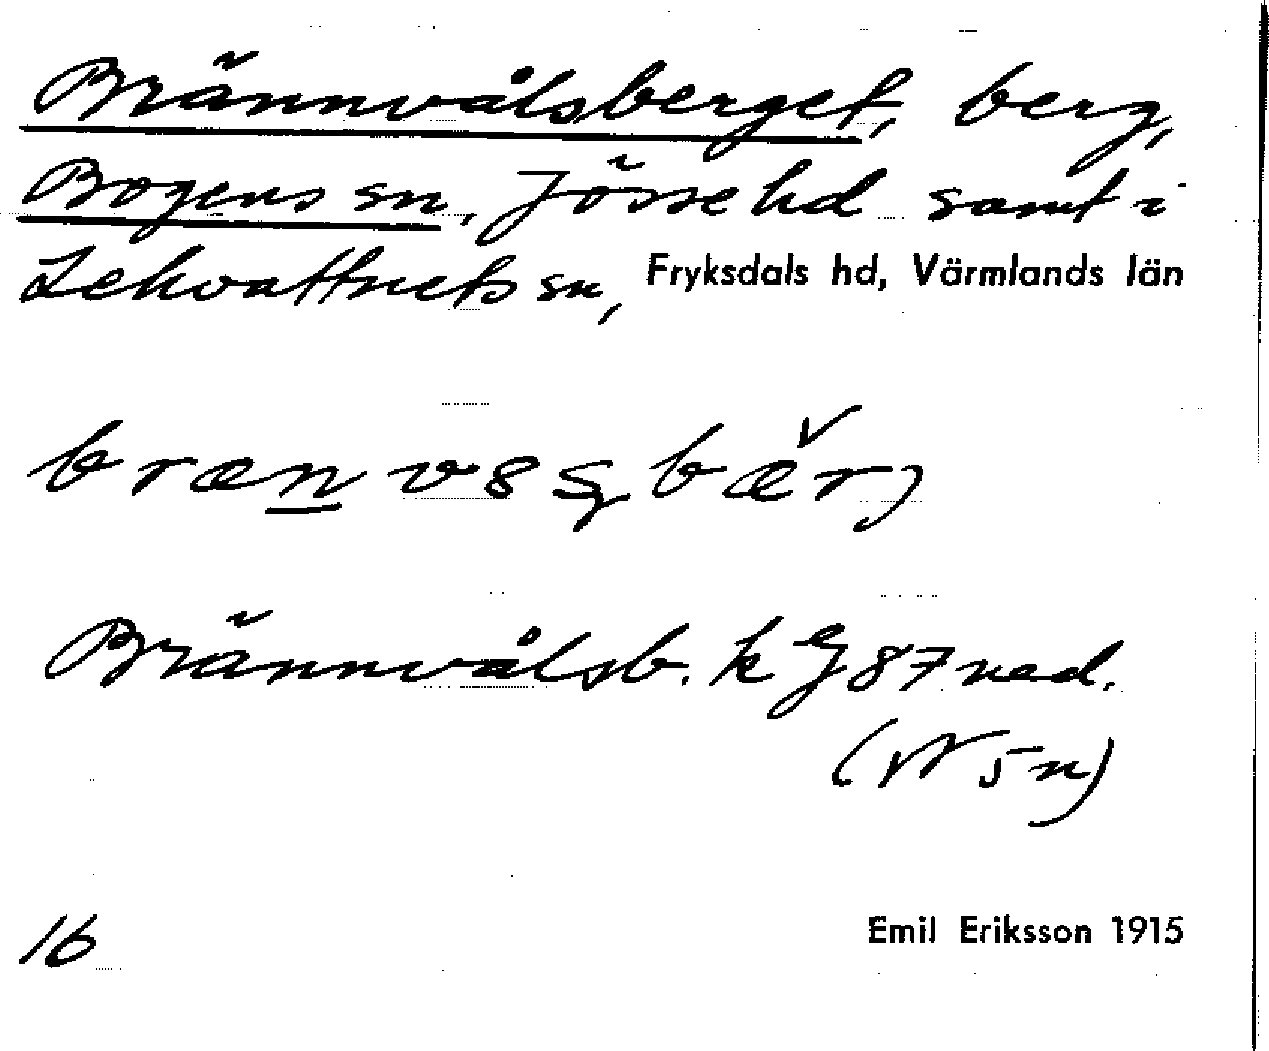 Brännvålsberget, berg,
Bogens sn, Jösse hd samt i
Lekvattnets sn, Fryksdals hd, Värmlands län
Brännvålsb. k
(W 5 n)
16 Emil Eriksson 1915